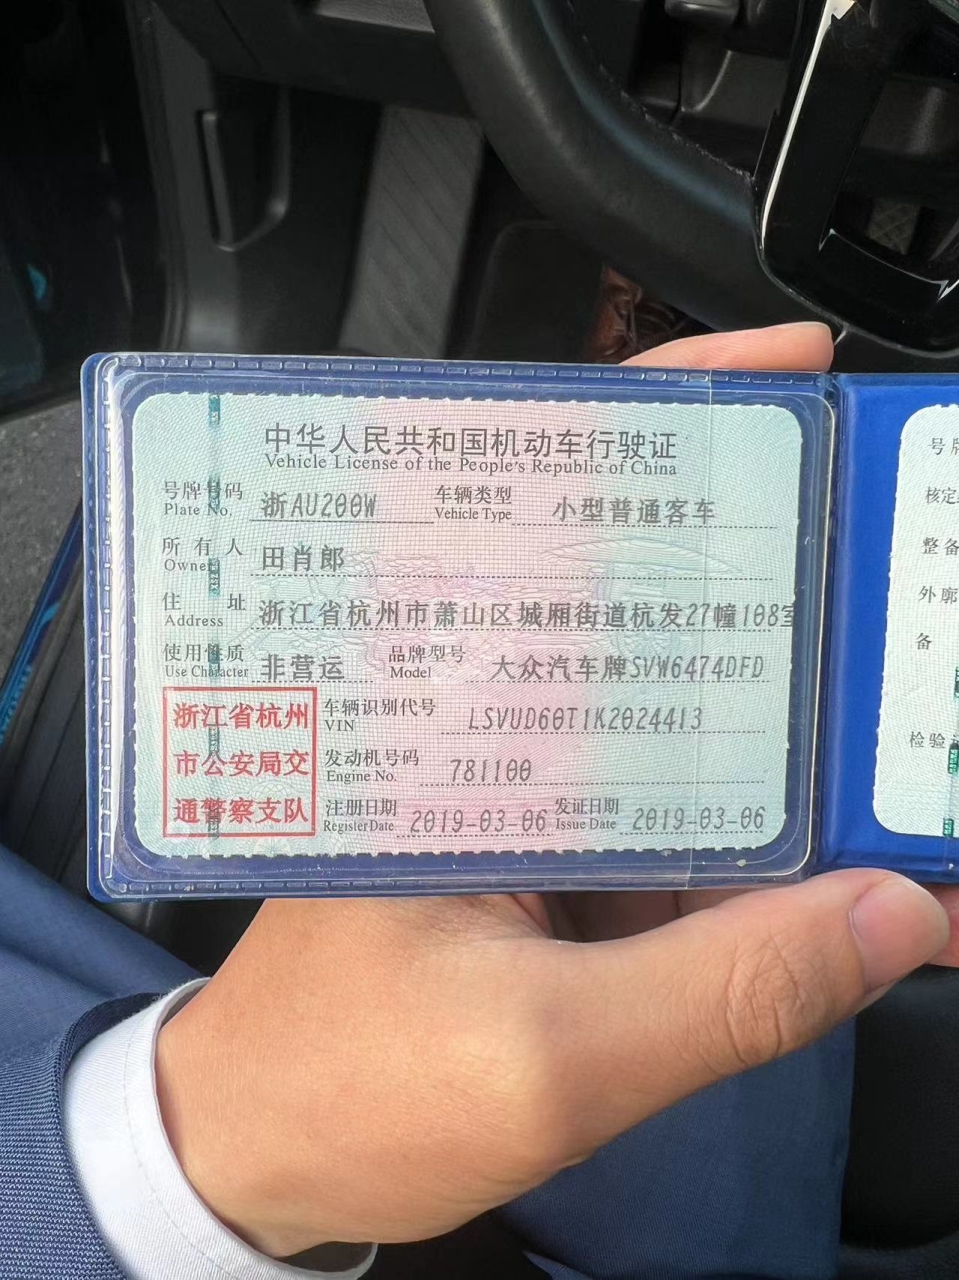 中华人民共和国机动车行驶证
Vehicle License of the People's Republic of China
号牌号码 浙AU200W 车辆类型 小型普通客车
Plate No. Vehicle Type
所有人 田肖郎
Owner
住址 浙江省杭州市萧山区城厢街道杭发27幢108室
Address
使用性质 非营运 品牌型号 大众汽车牌SVW6474DFD
Use Character Model
浙江省杭州
市公安局交
通警察支队
车辆识别代号 LSVUD60T1K2024413
VIN
发动机号码 781100
Engine No.
注册日期 2019-03-06 发证日期 2019-03-06
Register Date Issue Date
号牌
核定
整备
外廓
备
检验